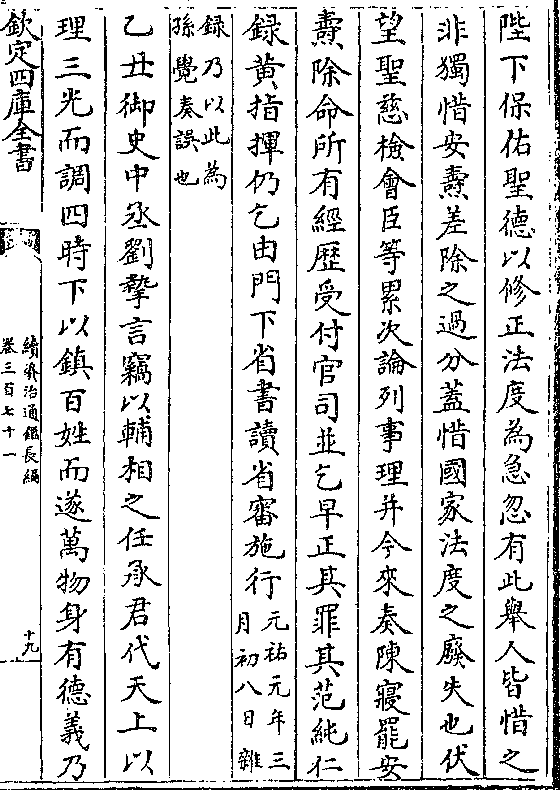 陛下保佑聖德以修正法度為急忽有此舉人皆惜之
非獨惜安燾差除之過分蓋惜國家法度之廢失也伏
望聖慈檢會臣等累次論列事理并今來奏陳寢罷安
燾除命所有經歴受付官司並乞早正其罪其范純仁
録黄指揮仍乞由門下省書讀省審施行元祐元年三
月初八日雜
録乃以此為
孫覺奏誤也
乙丑御史中丞劉摯言竊以輔相之任承君代天上以
理三光而調四時下以鎮百姓而遂萬物身有德義乃
欽定四庫全書
續資治通鑑長編
卷三百七十一
十九